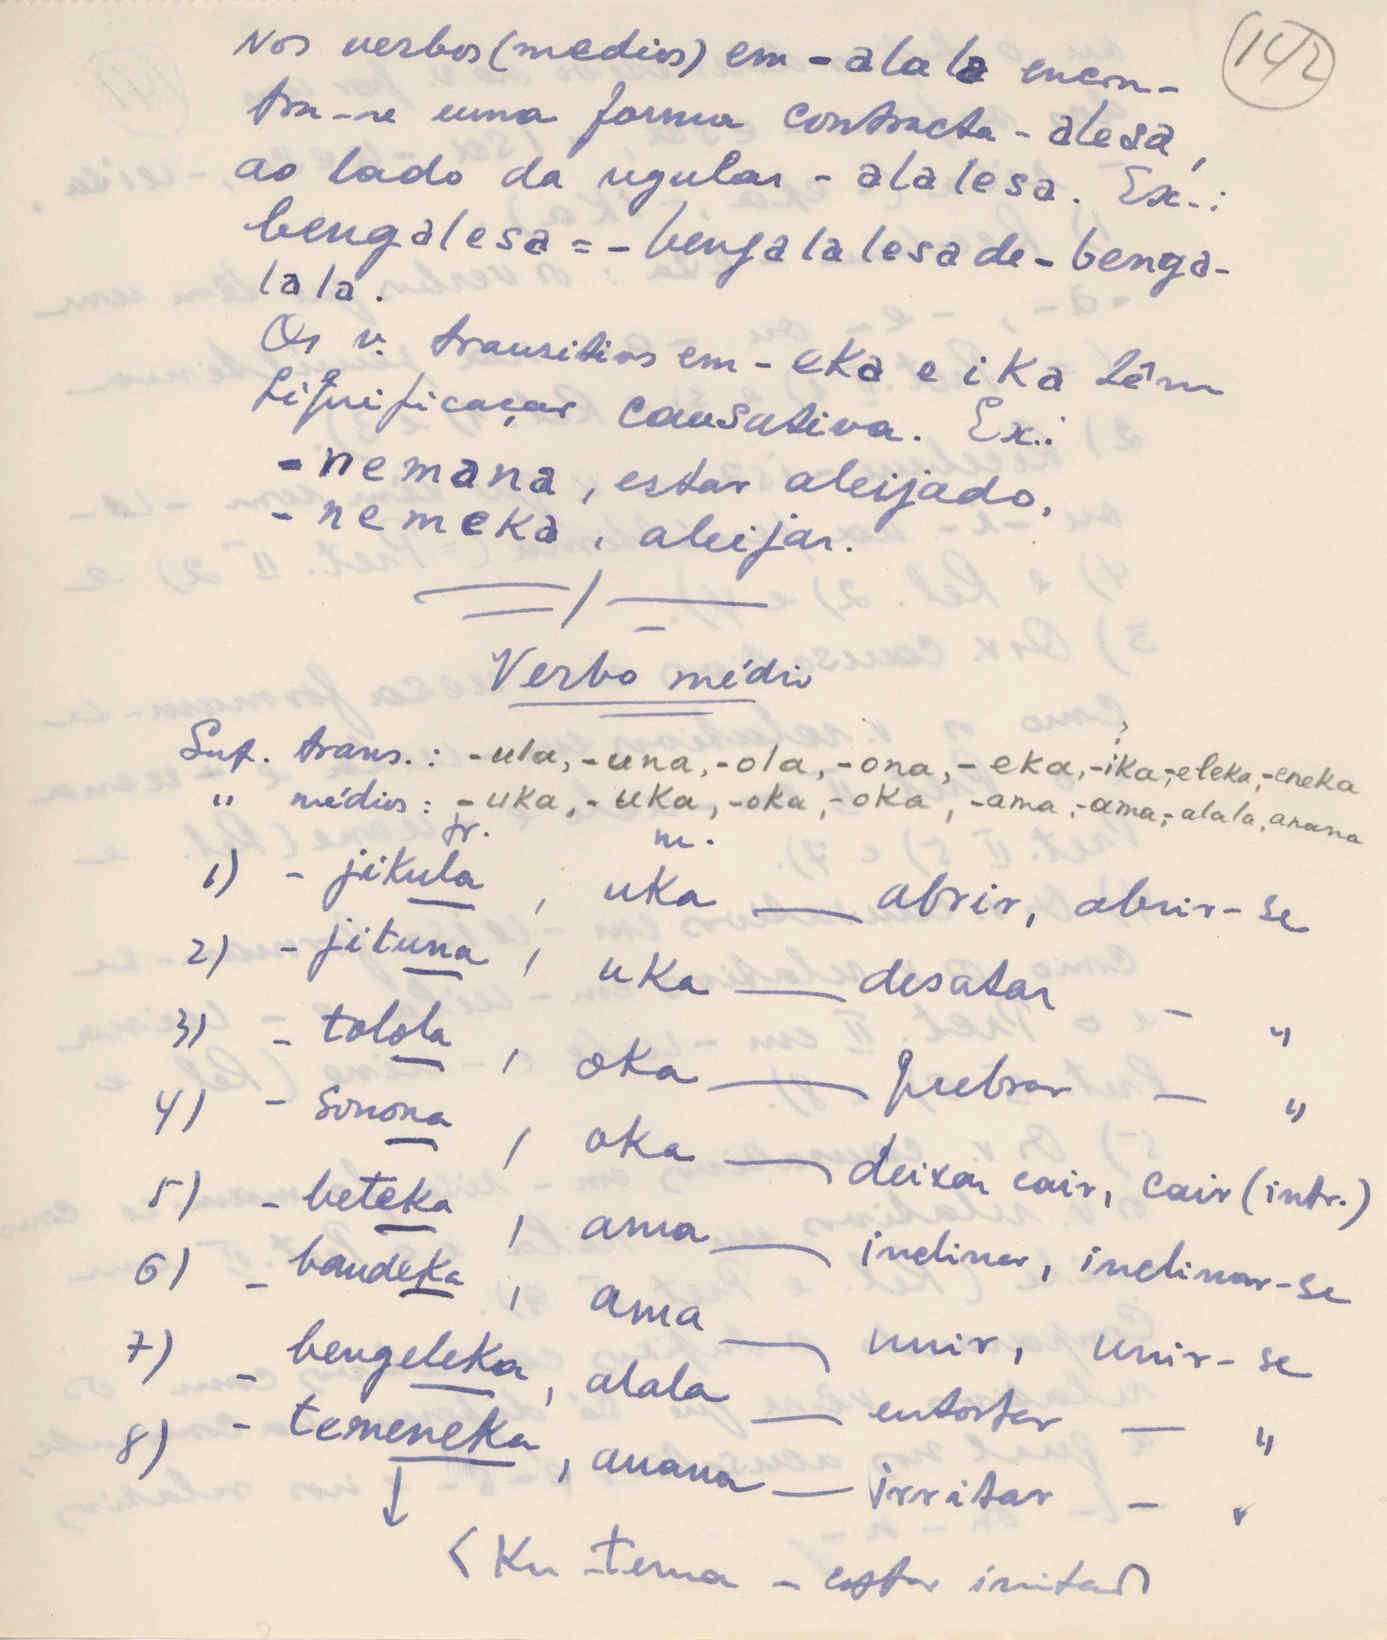 142
Nos verbos (medios) em -alala encon-
tra-se uma forma contracta -alesa,
ao lado da regular - alalesa. Ex.:
bengalesa = - bengalalesa de - benga-
lala.
Os v. transitivos em - eka e ika têm
significaçar causativa. Ex.:
- nemana, estar aleijado,
- nemeka, aleijar.
Verbo médio
Suf. trans.: -ula, -una, -ola, -ona, - eka, -ika, -eleka, -eneka
" médios: - uka, - uka, -oka, -oka, -ama, -ama, - alala, anana
tr. m.
1) - jikula, uka — abrir, abrir-se
2) - jituna, uka — desatar - "
3) - tolola, oka — quebrar - "
4) - sonona, oka — deixar cair, cair (intr.)
5) - beteka, ama — inclinar, inclinar-se
6) - bandeka, ama — unir, unir-se
7) - bengeleka, alala — entortar — "
8) - temeneka, anana — irritar - "
< Ku -tema - estar irritado